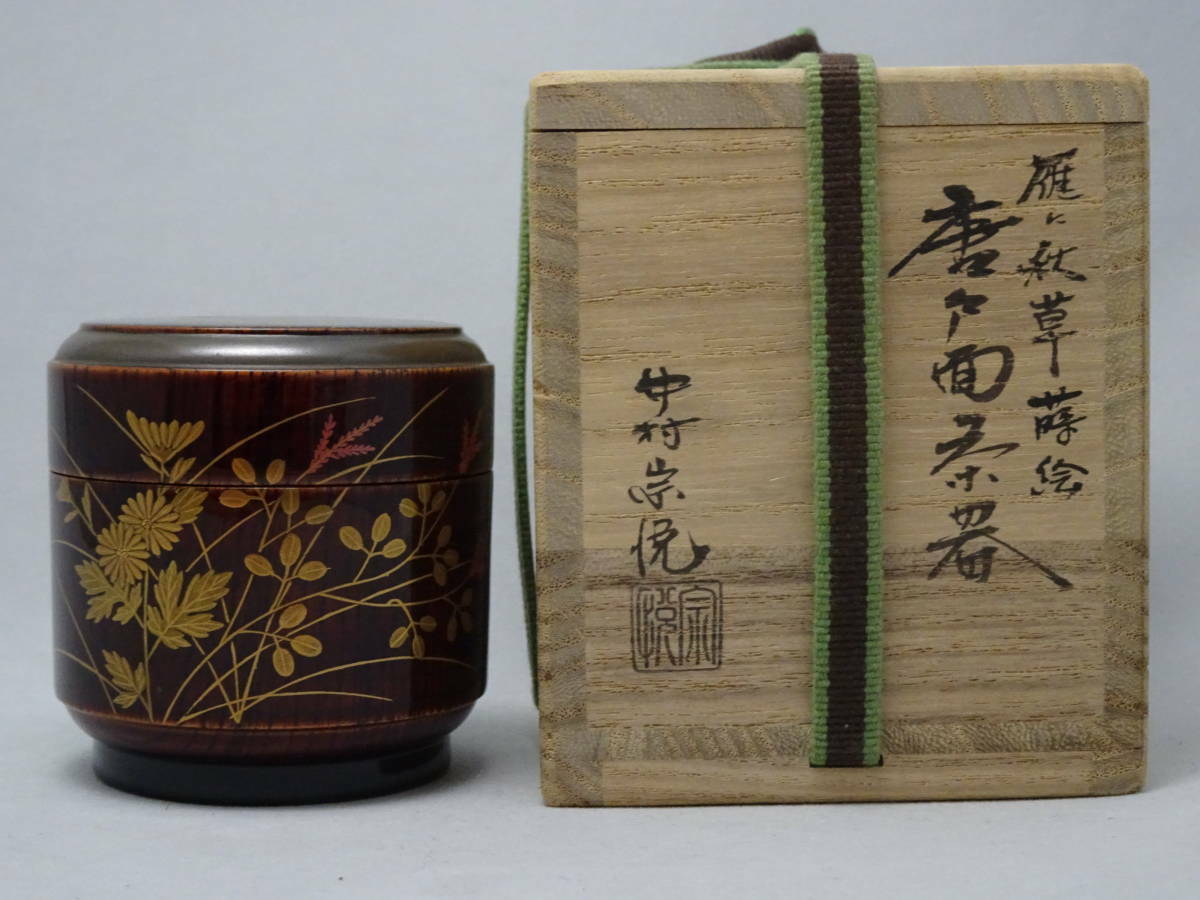 雁に秋草蒔絵
唐戸面茶器
中村宗悦
宗悦